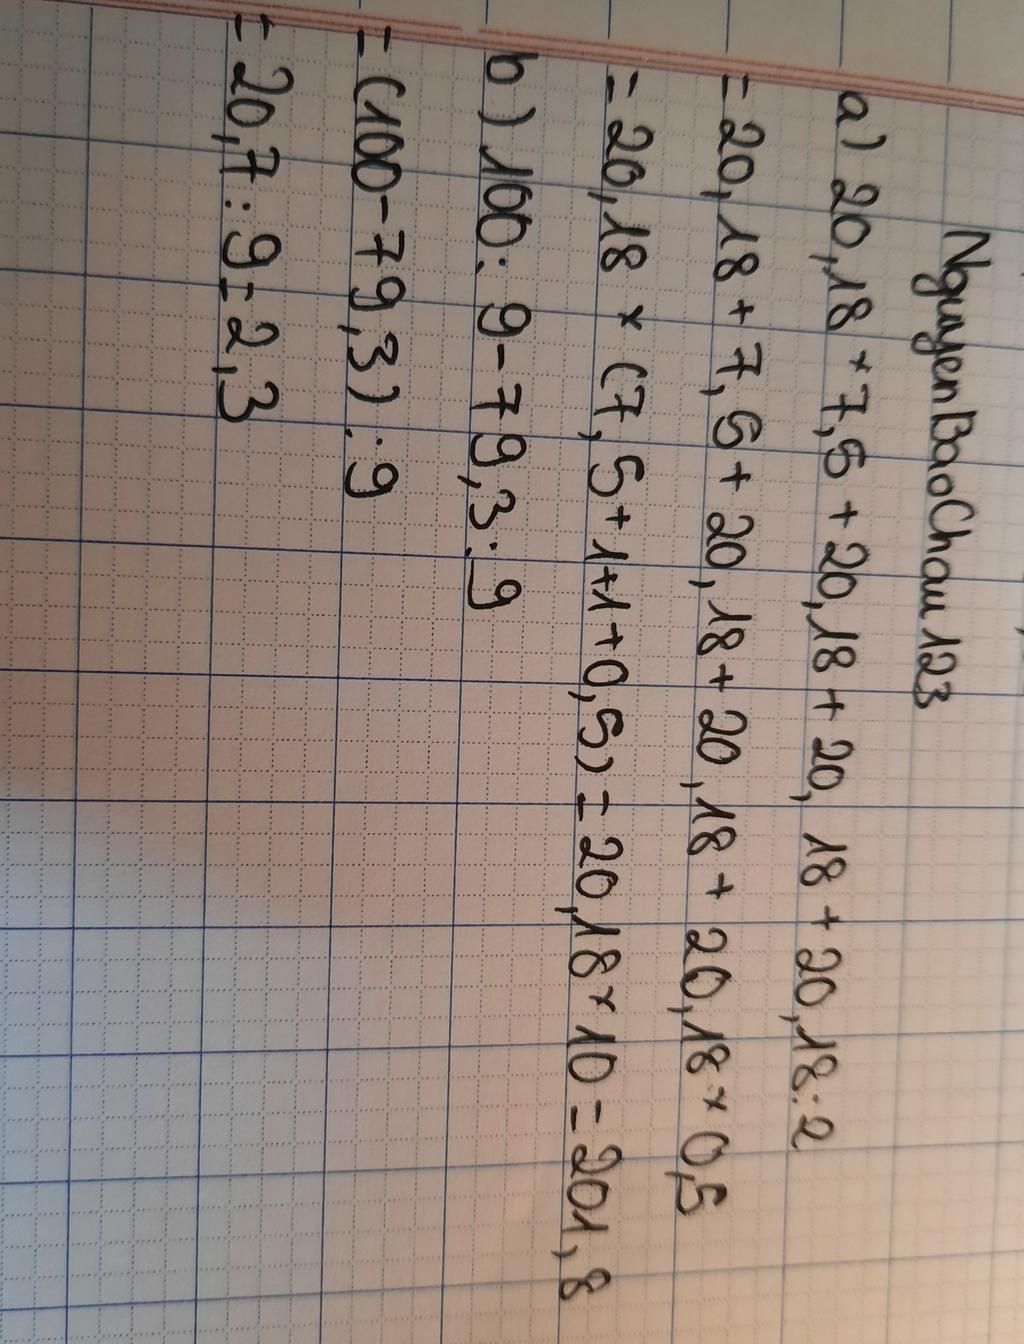 NguyenBaoChau123
a) 20,18 × 7,5 + 20,18 + 20,18 + 20,18 : 2
= 20,18 + 7,5 + 20,18 + 20,18 + 20,18 × 0,5
= 20,18 × (7,5 + 1 + 1 + 0,5) = 20,18 × 10 = 201,8
b) 100 : 9 - 79,3 : 9
= (100 - 79,3) : 9
= 20,7 : 9 = 2,3